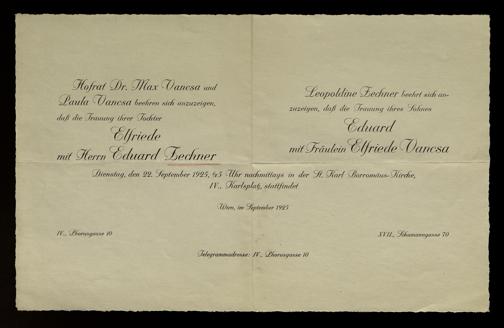 Hofrat Dr. Max Vancsa und
Paula Vancsa beehren sich anzuzeigen,
daß die Trauung ihrer Tochter
Elfriede
mit Herrn Eduard Zechner
Leopoldine Zechner beehrt sich an-
zuzeigen, daß die Trauung ihres Sohnes
Eduard
mit Fräulein Elfriede Vancsa
Dienstag, den 22. September 1925, ½5 Uhr nachmittags in der St. Karl Borromäus-Kirche,
IV., Karlsplatz, stattfindet
Wien, im September 1925
IV., Phorusgasse 10
XVII., Schumanngasse 70
Telegrammadresse: IV., Phorusgasse 10